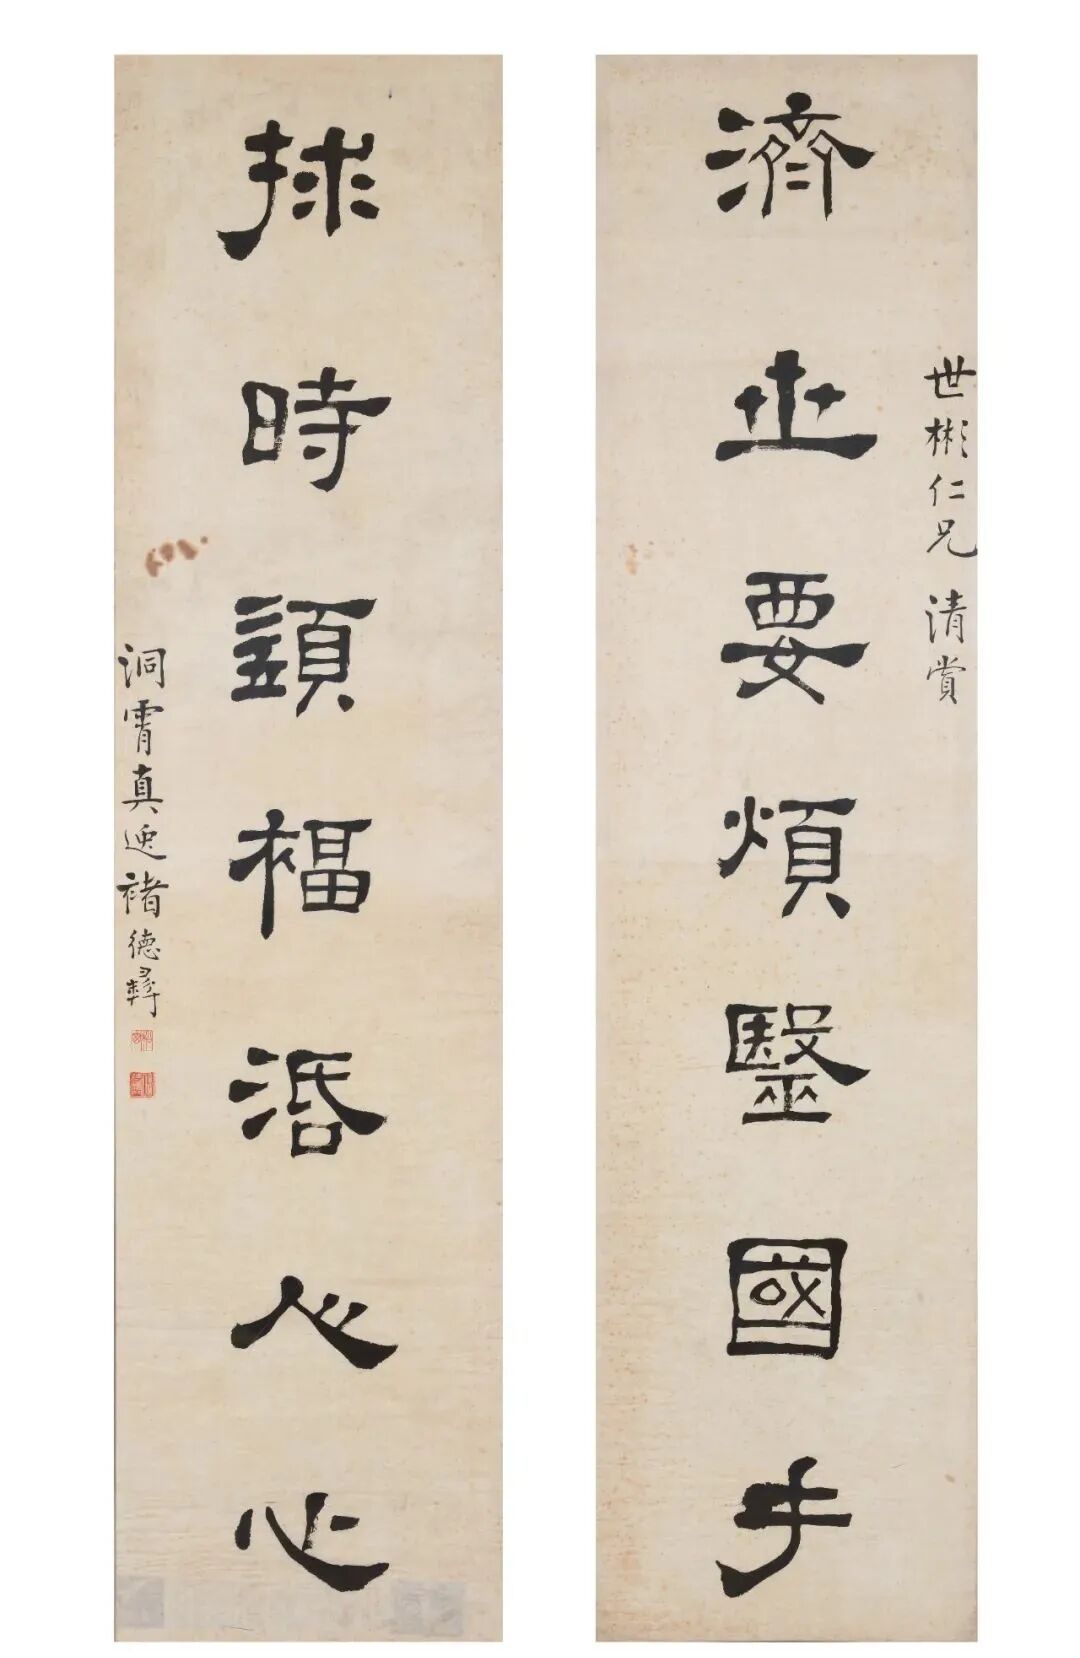 世彬仁兄 清賞
濟世要煩毉國手
捄時䇓福活人心
洞霄真逸褚德彝